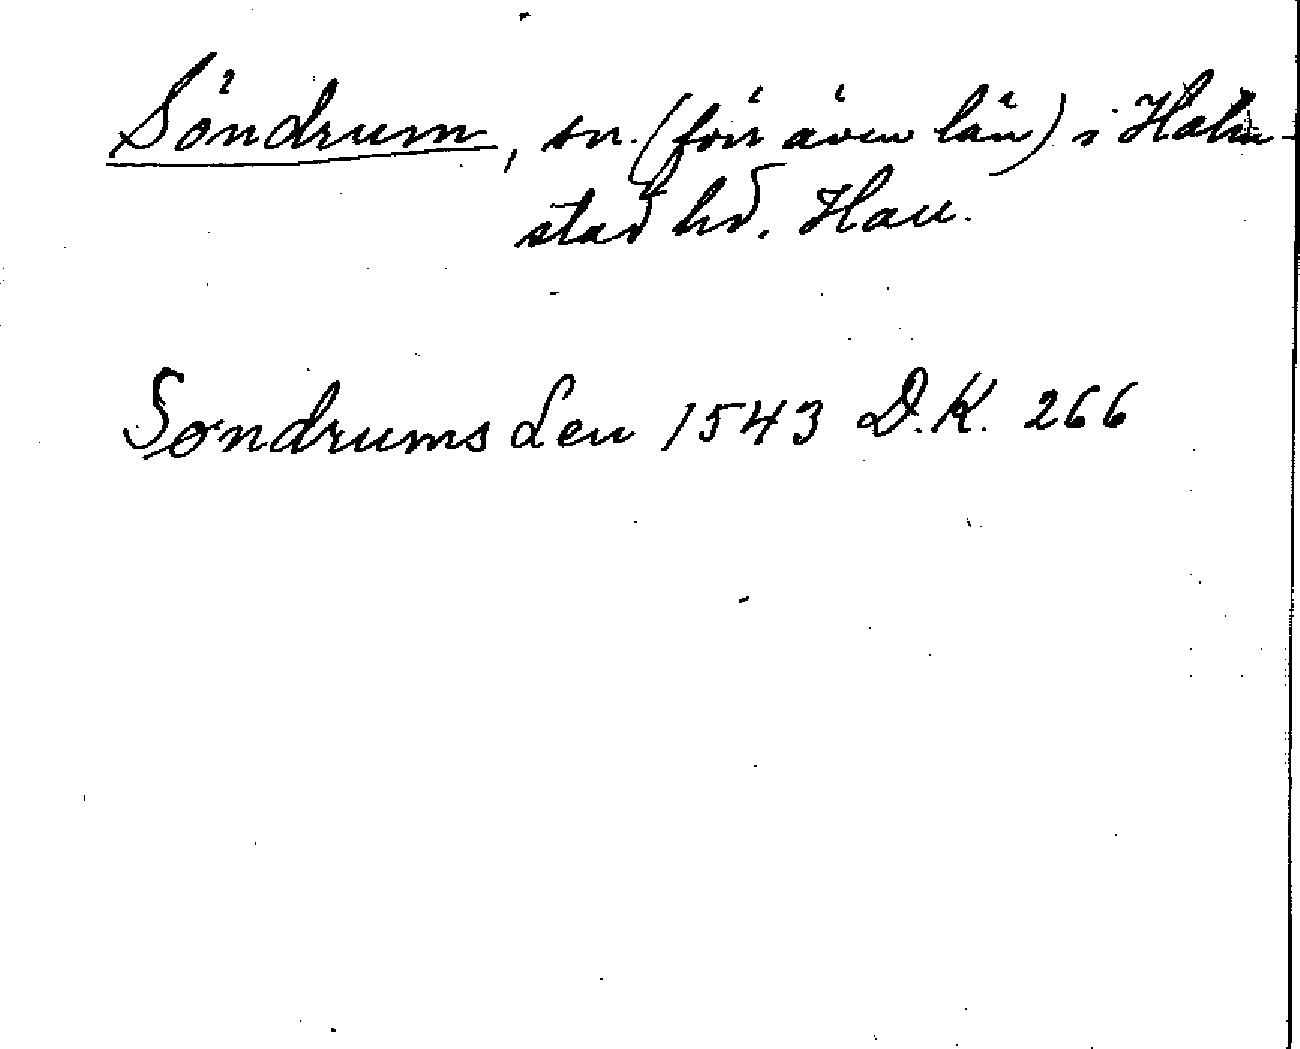 Söndrum, sn. (förr även län) i Halm-
stad hd. Hall.
Søndrums Len 1543 D.K. 266